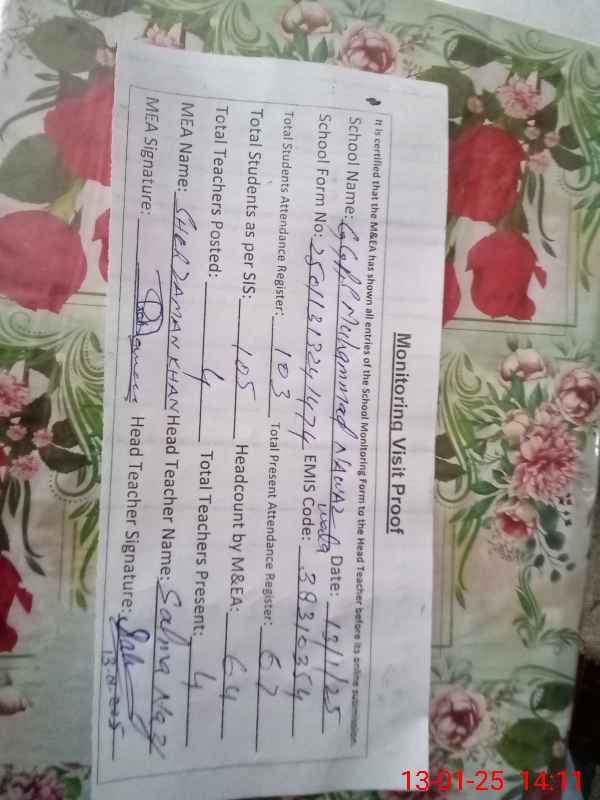 Monitoring Visit Proof
It is certified that the M&EA has shown all entries of the School Monitoring Form to the Head Teacher before its online submission.
School Name: GGPS Muhammad NAWAZ wala Date: 13/1/25
School Form No: EMIS Code: 38310354
Total Students Attendance Register: 103 Total Present Attendance Register: 67
Total Students as per SIS: 105 Headcount by M&EA: 64
Total Teachers Posted: 4 Total Teachers Present: 4
MEA Name: SHER ZAMAN KHAN Head Teacher Name: Salma Naz
MEA Signature: Head Teacher Signature:
13-01-25 14:11